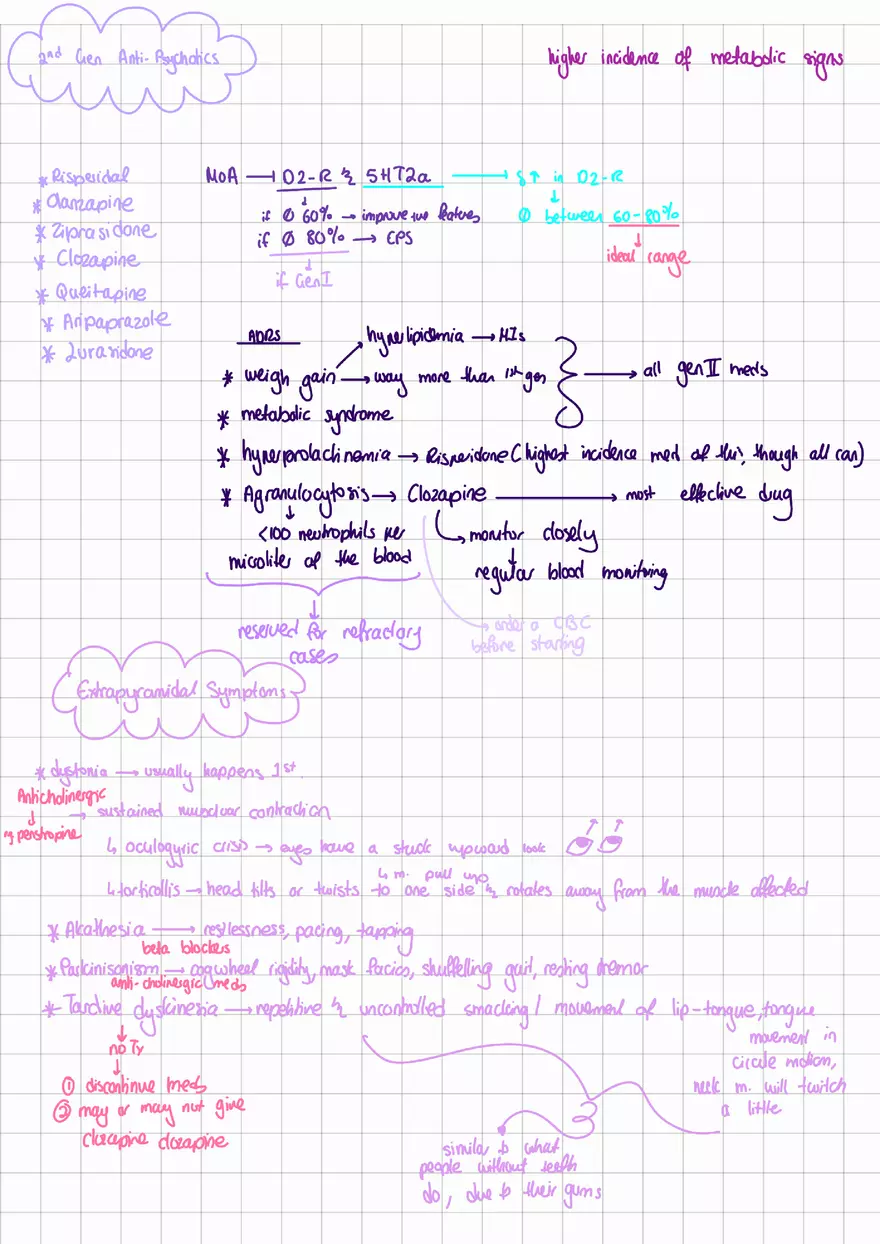 2nd Gen Anti-Psychotics
higher incidence of metabolic signs
* Risperidal
* Olanzapine
* Ziprasidone
* Clozapine
* Queitapine
* Aripaprazole
* Lurasidone
MoA → D2-R & 5HT2a → ↑ in D2-R
if Ø 60% → improve +ve features
if Ø 80% → EPS
if Gen I
Ø between 60-80%
ideal range
ADRS
hyperlipidemia → MIs
* weigh gain → way more than 1st gen → all gen II meds
* metabolic syndrome
* hyperprolactinemia → Risperidone (highest incidence med of this, though all can)
* Agranulocytosis → Clozapine → most effective drug
<100 neutrophils per
micoliter of the blood
monitor closely
regular blood monitring
reserved for refractory
cases
→ order a CBC
before starting
Extrapyramidal Symptoms
* dystonia → usually happens 1st.
Anticholinergic
→ sustained musclar contraction
↳ oculogyric crisis → eyes have a stuck upward look
↳ m. pull up
↳ torticollis → head tilts or twists to one side & rotates away from the muscle affected
* Akathesia → restlessness, pacing, tapping
beta blockers
* Parkinisonism → cogwheel rigidity, mask facies, shuffelling gait, resting tremor
anti-cholinergic meds
* Tardive dyskinesia → repetitive & uncontrolled smacking / movement of lip-tongue, tongue
movement in
circle motion,
neck m. will twitch
a little
no Ty
① discontinue meds
② may or may not give
clozapine clozapine
similar to what
people without teeth
do, due to their gums